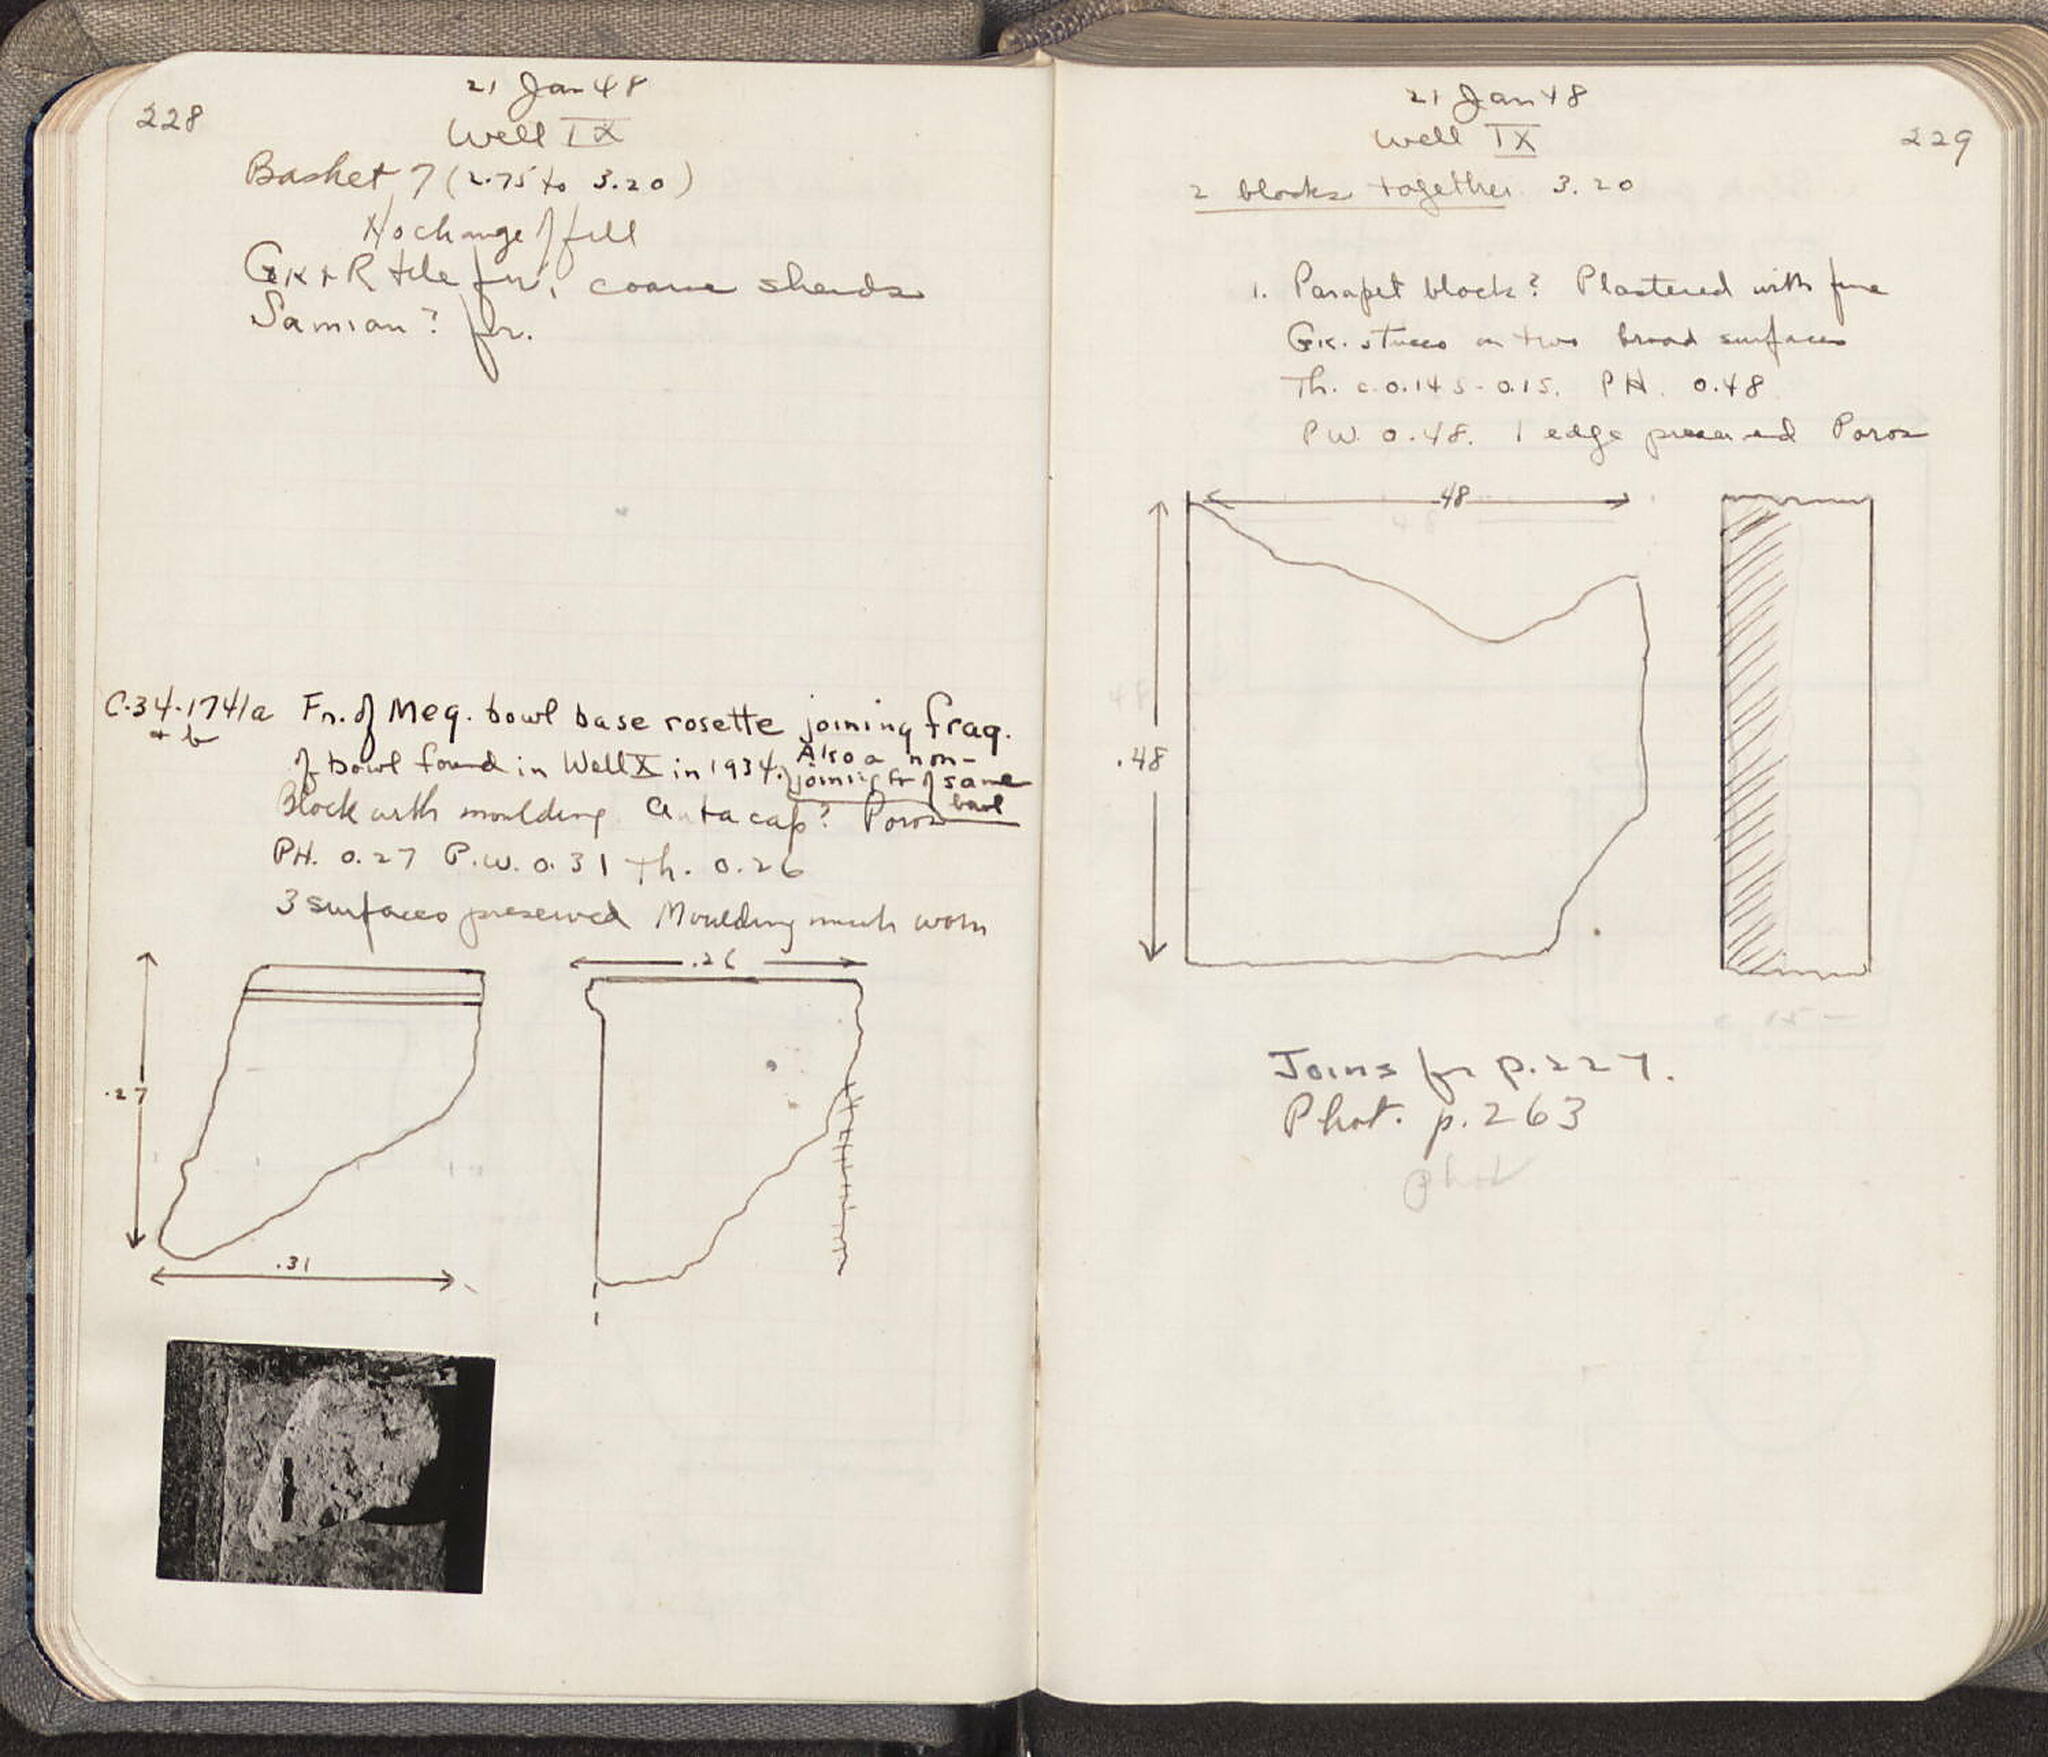 228
21 Jan 48
Well IX
Basket 7 (2.75 to 3.20)
No change of fill
Gk + R tile frr, coarse sherds
Samian? fr.
C.34.1741a + b
Fr. of Meg. bowl base rosette joining frag.
of bowl found in Well X in 1934. Also a non-
joining fr of same
bowl
Block with moulding Anta cap? Poros
PH. 0.27 P.W. 0.31 Th. 0.26
3 surfaces preserved Moulding much worn
.26
.27
.31
21 Jan 48
Well IX
229
2 blocks together 3.20
1. Parapet block? Plastered with fine
Gk. stucco on two broad surfaces
Th. c. 0.145-0.15. PH. 0.48
PW. 0.48. 1 edge preserved Poros
.48
.48
Joins fr p. 227.
Phot. p. 263
Phot